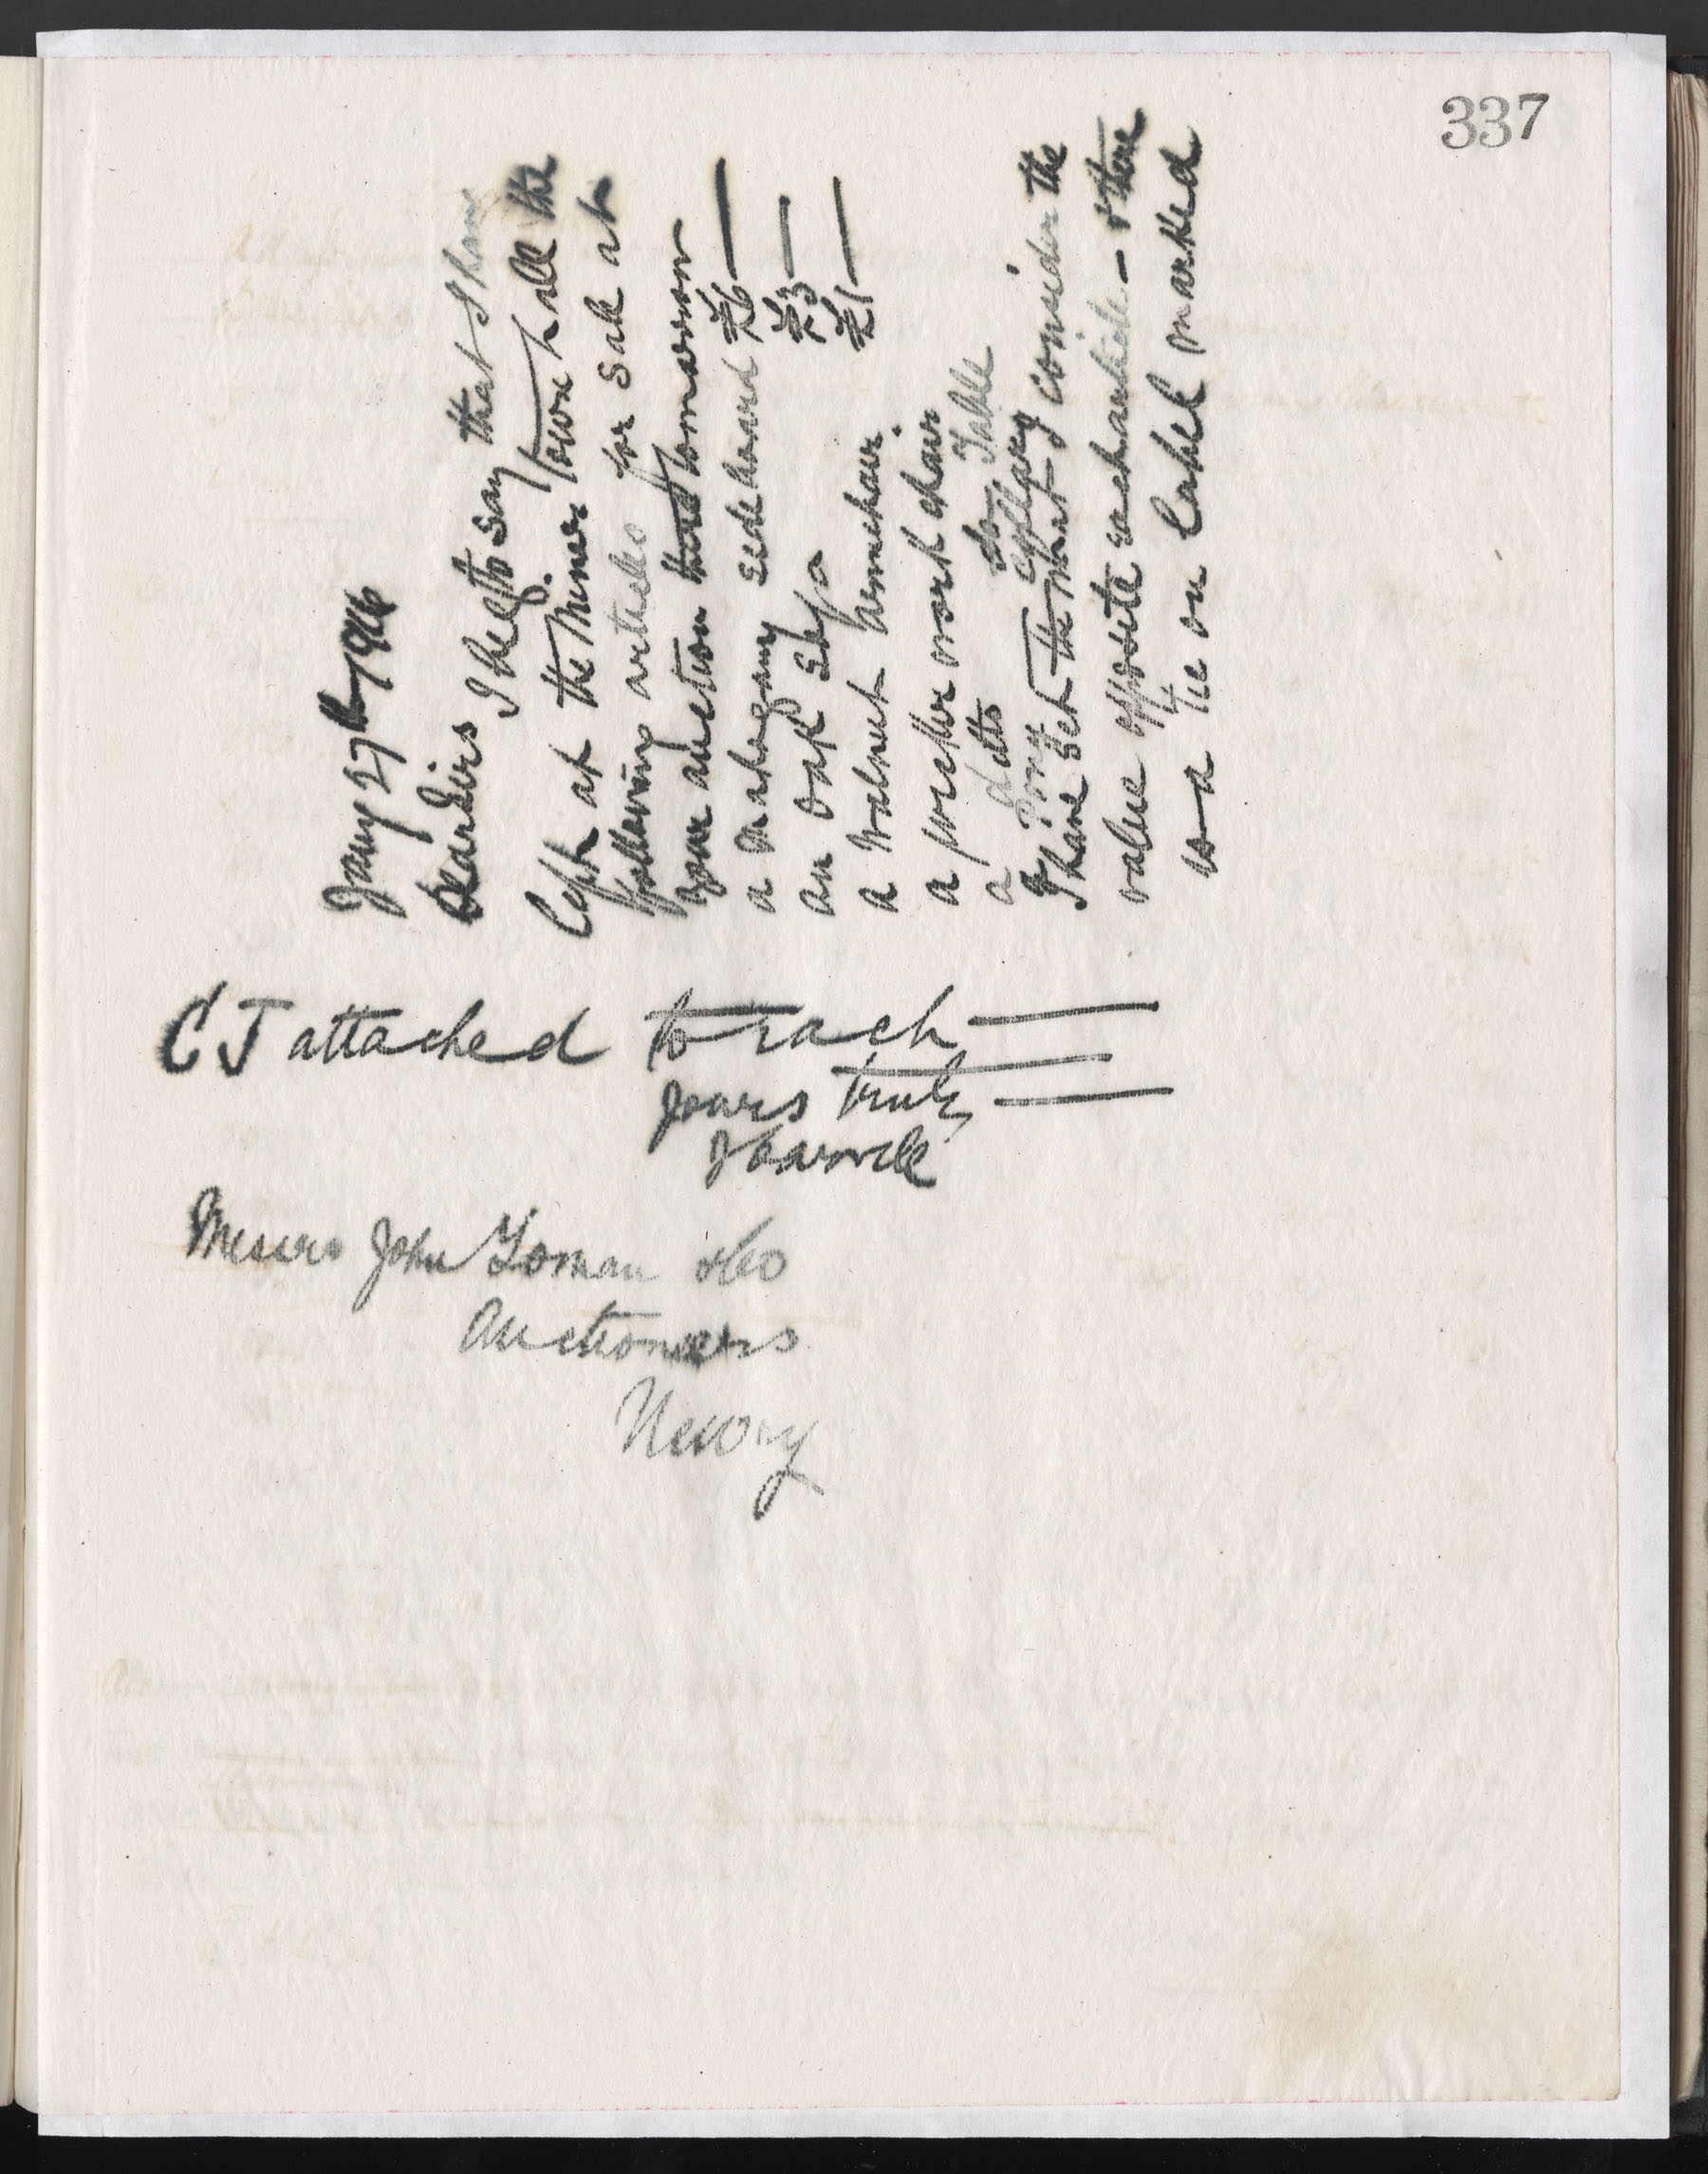 337
Jany 27th 1916
Dear Sirs I beg to say that I have
left at the Minor Town hall the
following articles for sale at
your auction there tomorrow
a Mahogany sideboard £6 —
an oak sofa £3 —
a Walnut armchair £1 —
a wicker work chair
a ditto do Table
I have set the what I consider the
value opposite each article — & there
is a tie on label marked
C J attached to each —
yours truly —
Messrs John Loman & Co
Auctioneers
Newry